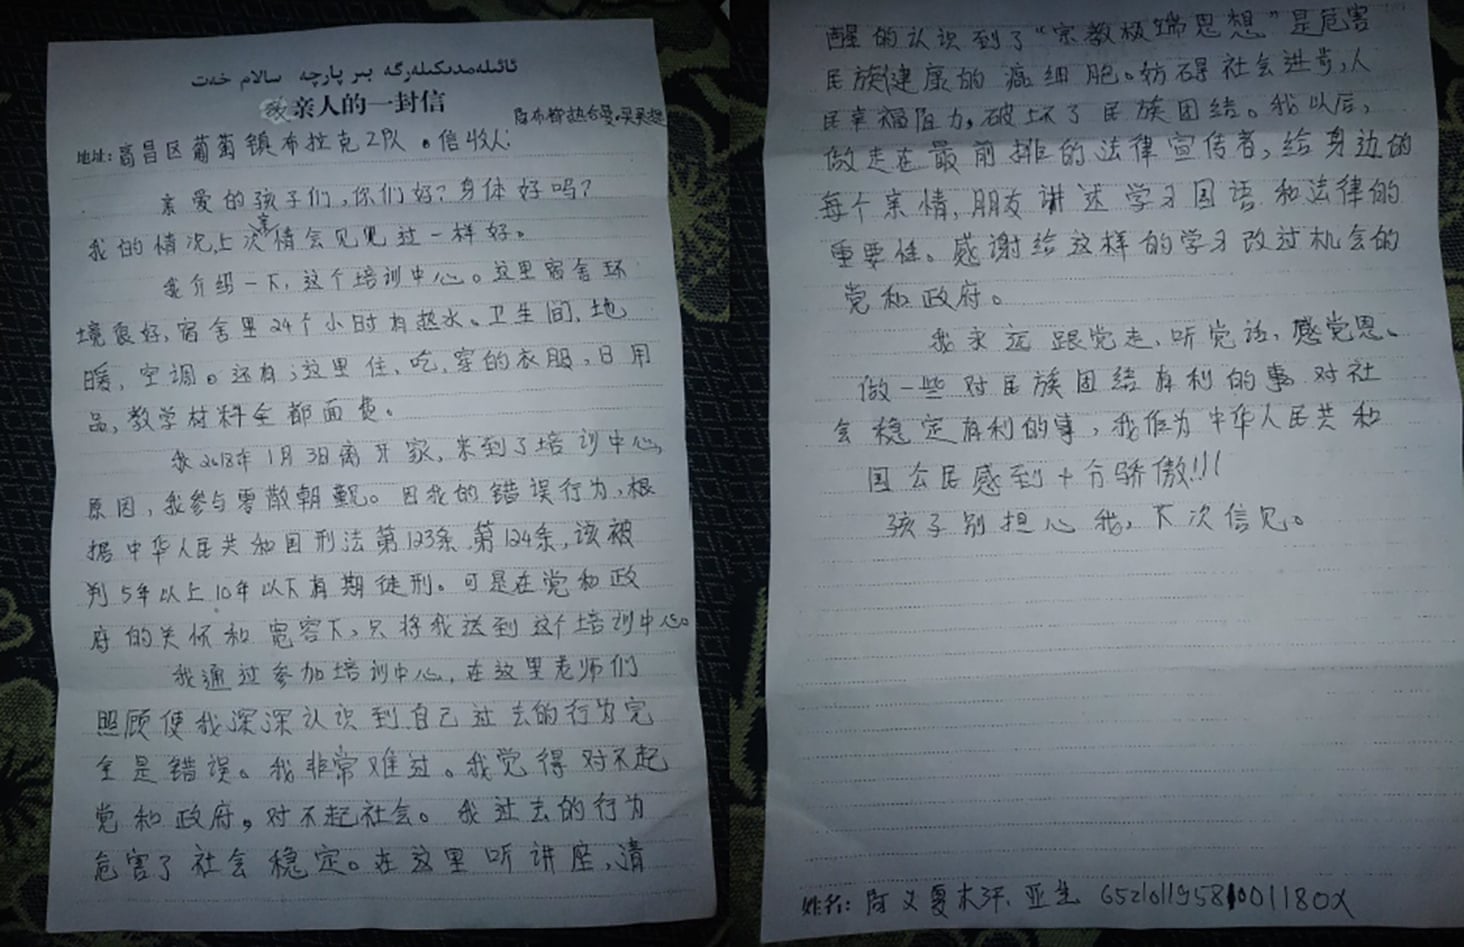 ئائىلەمدىكىلەرگە بىر پارچە سالام خەت
致亲人的一封信
地址:高昌区葡萄镇布拉克2队。信收人:阿布都热合曼·买买提
亲爱的孩子们,你们好?身体好吗?
我的情况,上次亲情会见见过一样好。
我介绍一下,这个培训中心。这里宿舍环
境良好,宿舍里24个小时有热水。卫生间,地
暖,空调。还有;这里住、吃、穿的衣服,日用
品,教学材料全都面费。
我2018年1月3日离开家,来到了培训中心,
原因,我参与零散朝觐。因我的错误行为,根
据中华人民共和国刑法第123条,第124条,该被
判5年以上10年以下有期徒刑。可是在党和政
府的关怀和宽容下,只将我送到这个培训中心。
我通过参加培训中心,在这里老师们
照顾使我深深认识到自己过去的行为完
全是错误。我非常难过。我觉得对不起
党和政府,对不起社会。我过去的行为
危害了社会稳定。在这里听讲座,清
醒的认识到了“宗教极端思想”是危害
民族健康的癌细胞。妨碍社会进步,人
民幸福阻力,破坏了民族团结。我以后,
做走在最前排的法律宣传者,给身边的
每个亲情,朋友讲述学习国语和法律的
重要性。感谢给这样的学习改过机会的
党和政府。
我永远跟党走、听党话,感党恩、
做一些对民族团结有利的事对社
会稳定有利的事,我作为中华人民共和
国公民感到十分骄傲!!!
孩子别担心我,下次信见。
姓名:阿义夏木汗·亚生